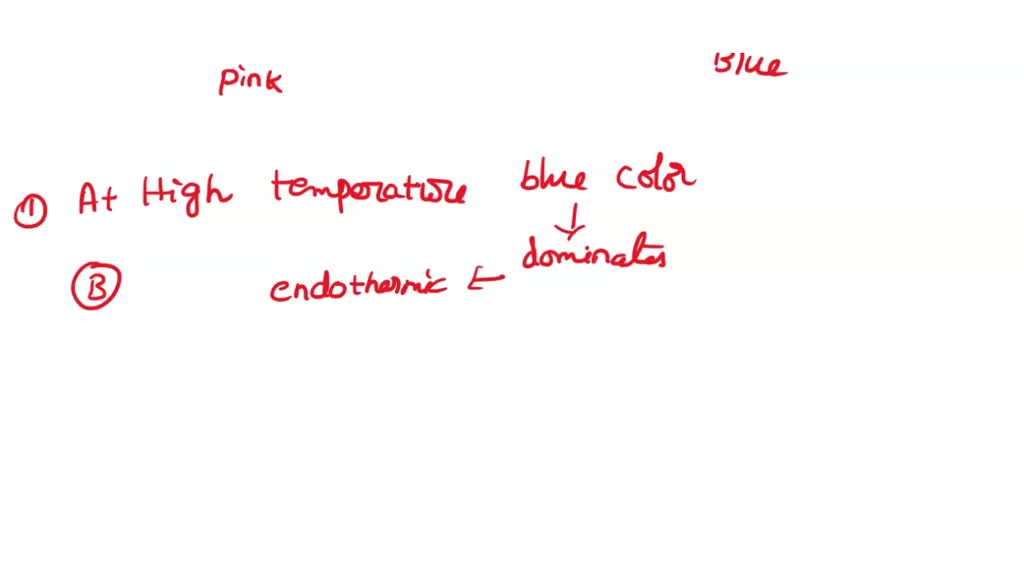 pink Blue
① At High temperature blue color
↓
dominates
Ⓑ endothermic ←